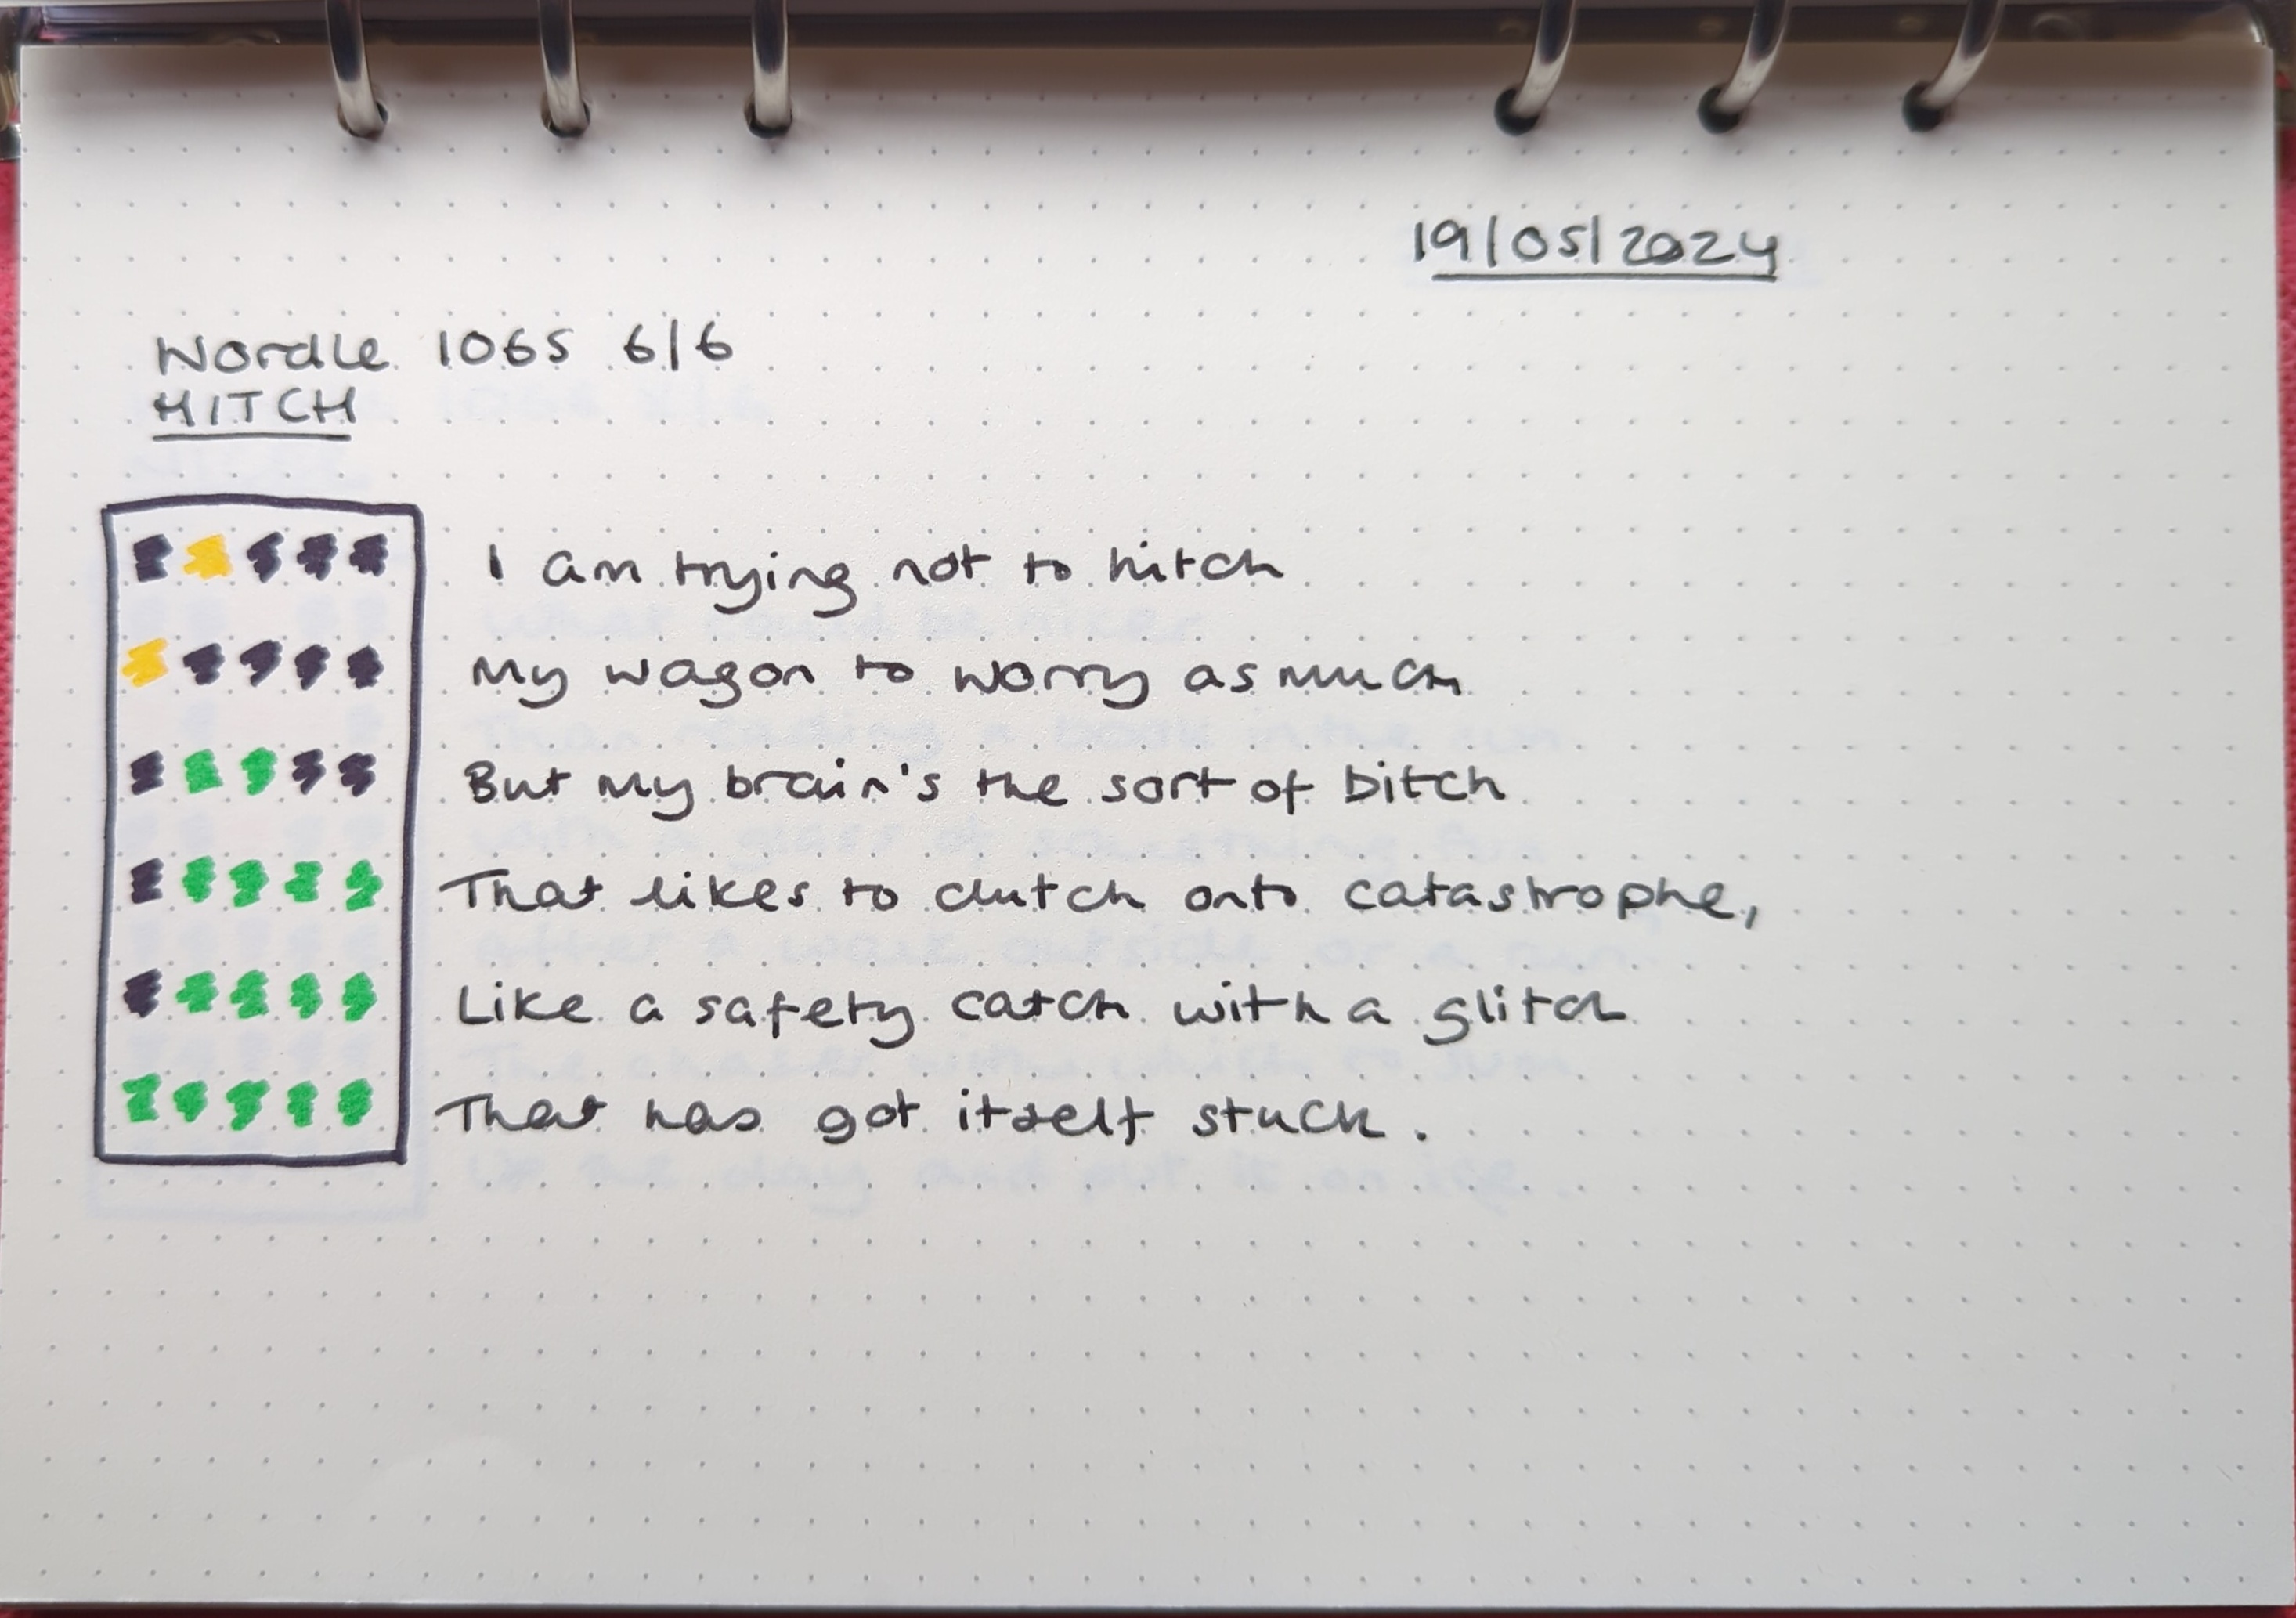 19/05/2024
Wordle 1065 6/6
HITCH
I am trying not to hitch
My wagon to worry as much
But my brain's the sort of bitch
That likes to clutch onto catastrophe,
Like a safety catch with a glitch
That has got itself stuck.